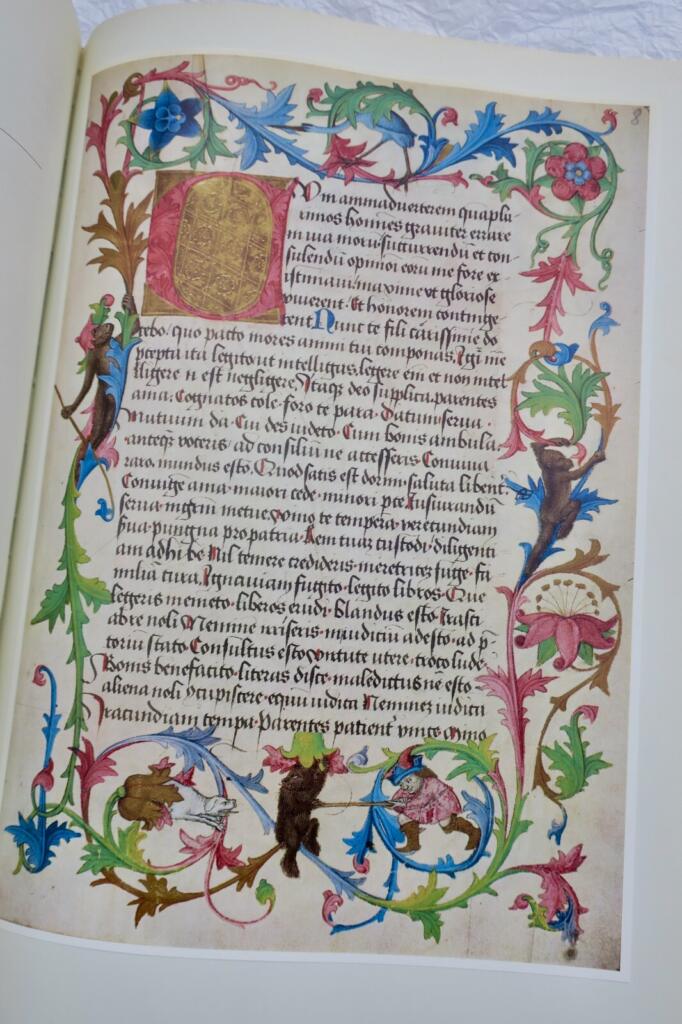 8
Cum animaduerterem quaplu
rimos homines grauiter errare
in uia moru succurrendu et con
sulendu opinioi eoru me fore ex
istimaui maxime vt gloriose
viuerent · Et honorem continge
rent Nunc te fili carissime do
cebo · quo pacto mores animi tui componas · Igit me
pcepta ita legito ut intelligas, legere em et non intel
lligere n est negligere · Itaq deo supplica · parentes
ama · Cognatos cole · foro te para · Datum serua ·
Mutuum da · Cui des uideto · Cum bonis ambula ·
anteq voceris · ad consiliu ne accesseris · Conuiua
raro · mundus esto · Quod satis est dormi · saluta libent
Coniuge ama · maiori cede · minori pce · Iusiurandu
serua · mgrm metue · vino te tempera · verecundiam
sua · pungna pro patria · Rem tua custodi · diligenti
am adhibe · Nil temere credideris · meretrices fuge · fa
milia cura · Ignauiam fugito · legito libros · Que
legeris memeto · liberos erudi · blandus esto · Irasci
ab re noli · Nemine irriseris · in iudiciu adesto · ad p
toriu stato · Consultus esto · virtute utere · troco lude ·
Bonis benefacito · literas disce · maledictus ne esto ·
aliena noli cupiscere · equu iudica · Nemine iudica
Iracundiam tempa · Parentes patient vince · Mino